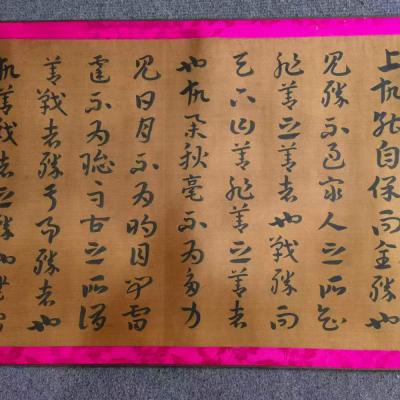 上故能自保而全勝也
見勝不過眾人之所知
非善之善者也戰勝而
天下曰善非善之善者
也故舉秋毫不為多力
見日月不為明目聞雷
霆不為聰耳古之所謂
善戰者勝于易勝者也
故善戰者之勝也無智